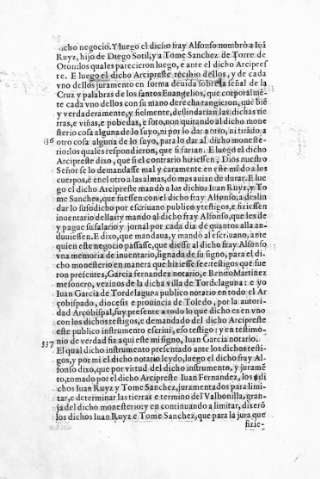 dicho negocio. Y luego el dicho fray Alfonso nombrò a Iuā
Ruyz, hijo de Diego Sotil, y a Tome Sanchez de Torre de
Otonδos quales parecieron luego, e ante el dicho Arcipres
te. E luego el dicho Arcipreste recibio dellos, y de cada
vno dellos juramento en forma deuida sobre la señal de la
Cruz y palabras de los santos Euangelios, que corporalmē-
te cada vno dellos con su mano derecha tangieron, que biē
y verdaderamente, y fielmente, deslindarian las dichas tie
rras, e viñas, e
otro cosa alguna de lo suyo, para lo dar al dicho moneste-
rio: los quales respondieron, que si farian. E luego el dicho
Arcipreste dixo, que si el contrario hiziessen, Dios nuestro
Señor se lo demandasse mal y caramente en este mūdo a los
cuerpos, è en el otro a las almas, do mas auian de durar. E lue
go el dicho Arcipreste mandò a los dichos Iuan Ruyz, y To
me Sanchez, que fuessen con el dicho fray Alfonso, a deslin
dar lo susodicho por escriuano publico y testigos, e fiziessen
inventario dello: y mando al dicho fray Alfonso, que les de
y pague su salario y jornal por cada dia de quantos alla an-
duuiessen. E dixo, que mandaua, y mandò al escriuano, ante
quien este negocio passasse, que diesse al dicho fray Alfonso
vna memoria de inventario, signada de su signo, para el di-
cho monesterio en manera que hiziesse fee: testigos que fue
ron presentes, Garcia fernandez notario, e Benito Martinez
mesonero, vezinos de la dicha villa de Tordelaguna: e yo
Iuan Garcia de Tordelaguna publico notario en todo el Ar
çobispado, diocesis e prouincia de Toledo, por la autori-
dad Arçobispal, fuy presente a todo lo que dicho es en vno
con los dichos testigos, e demandado del dicho Arcipreste
este publico instrumento escriui, eso testigo: y en testimo-
nio de verdad fiz aqui este mi signo, Iuan Garcia notario.
317 El qual dicho instrumento presentado ante los dichos testi-
gos, y por mi el dicho notario leydo, luego el dicho fray Al-
fonso dixo, que por virtud del dicho instrumento, y juramē
to, tomado por el dicho Arcipreste Iuan Fernandez, los di
chos Iuan Ruyz e Tome Sanchez, juramentados para limi-
tar, e determinar las tierras e termino del Valbonilla, gran-
ja del dicho monesterio: y en continuando a limitar, dixerō
los dichos Iuan Ruyz e Tome Sanchez, que para la jura que
fizie-